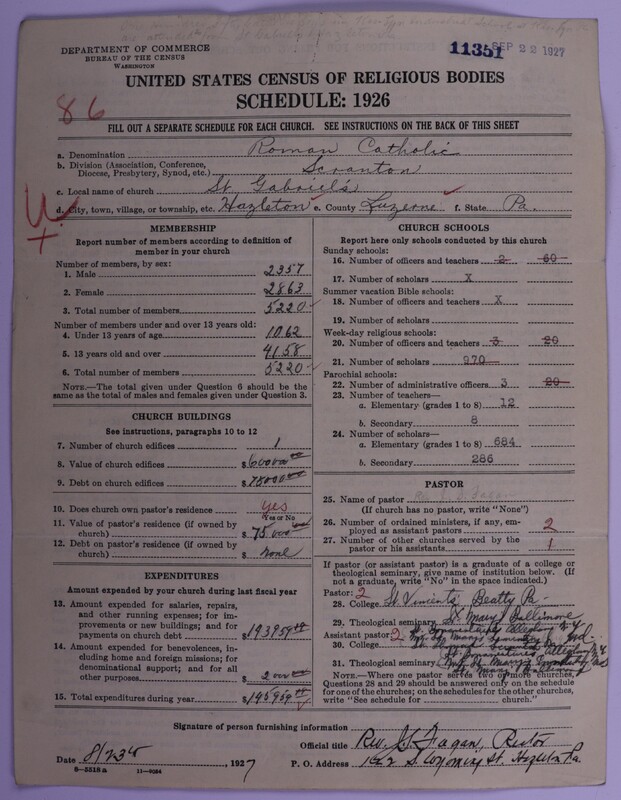 DEPARTMENT OF COMMERCE
BUREAU OF THE CENSUS
WASHINGTON
11351 SEP 22 1927
UNITED STATES CENSUS OF RELIGIOUS BODIES
SCHEDULE: 1926
86
FILL OUT A SEPARATE SCHEDULE FOR EACH CHURCH. SEE INSTRUCTIONS ON THE BACK OF THIS SHEET
a. Denomination Roman Catholic
b. Division (Association, Conference, Diocese, Presbytery, Synod, etc.) Scranton
c. Local name of church St. Gabriel's
d. City, town, village, or township, etc. Hazleton e. County Luzerne f. State Pa.
MEMBERSHIP
Report number of members according to definition of member in your church
Number of members, by sex:
1. Male 2357
2. Female 2863
3. Total number of members 5220
Number of members under and over 13 years old:
4. Under 13 years of age 1062
5. 13 years old and over 4158
6. Total number of members 5220
NOTE.—The total given under Question 6 should be the same as the total of males and females given under Question 3.
CHURCH BUILDINGS
See instructions, paragraphs 10 to 12
7. Number of church edifices 1
8. Value of church edifices $
9. Debt on church edifices $
10. Does church own pastor's residence? yes
Yes or No
11. Value of pastor's residence (if owned by church) $ 75,000
12. Debt on pastor's residence (if owned by church) $ none
EXPENDITURES
Amount expended by your church during last fiscal year
13. Amount expended for salaries, repairs, and other running expenses; for improvements or new buildings; and for payments on church debt $ 193959
14. Amount expended for benevolences, including home and foreign missions; for denominational support; and for all other purposes $ 2000
15. Total expenditures during year $ 195959
CHURCH SCHOOLS
Report here only schools conducted by this church
Sunday schools:
16. Number of officers and teachers 2 60
17. Number of scholars X
Summer vacation Bible schools:
18. Number of officers and teachers X
19. Number of scholars
Week-day religious schools:
20. Number of officers and teachers 3 20
21. Number of scholars 970
Parochial schools:
22. Number of administrative officers 3 20
23. Number of teachers—
a. Elementary (grades 1 to 8) 12
b. Secondary 8
24. Number of scholars—
a. Elementary (grades 1 to 8) 684
b. Secondary 286
PASTOR
25. Name of pastor
(If church has no pastor, write "None")
26. Number of ordained ministers, if any, employed as assistant pastors 2
27. Number of other churches served by the pastor or his assistants 1
If pastor (or assistant pastor) is a graduate of a college or theological seminary, give name of institution below. (If not a graduate, write "No" in the space indicated.)
Pastor: 2
28. College St Vincents Beatty Pa.
29. Theological seminary St Mary's Baltimore
Assistant pastor: 2
30. College
31. Theological seminary
NOTE.—Where one pastor serves two or more churches, Questions 28 and 29 should be answered only on the schedule for one of the churches; on the schedules for the other churches, write "See schedule for church."
Signature of person furnishing information
Official title Rev. J. J. Fagan, Rector
Date 8/23 1927
P. O. Address 122 S. Wyoming St. Hazleton Pa.
8-5518a 11-9054